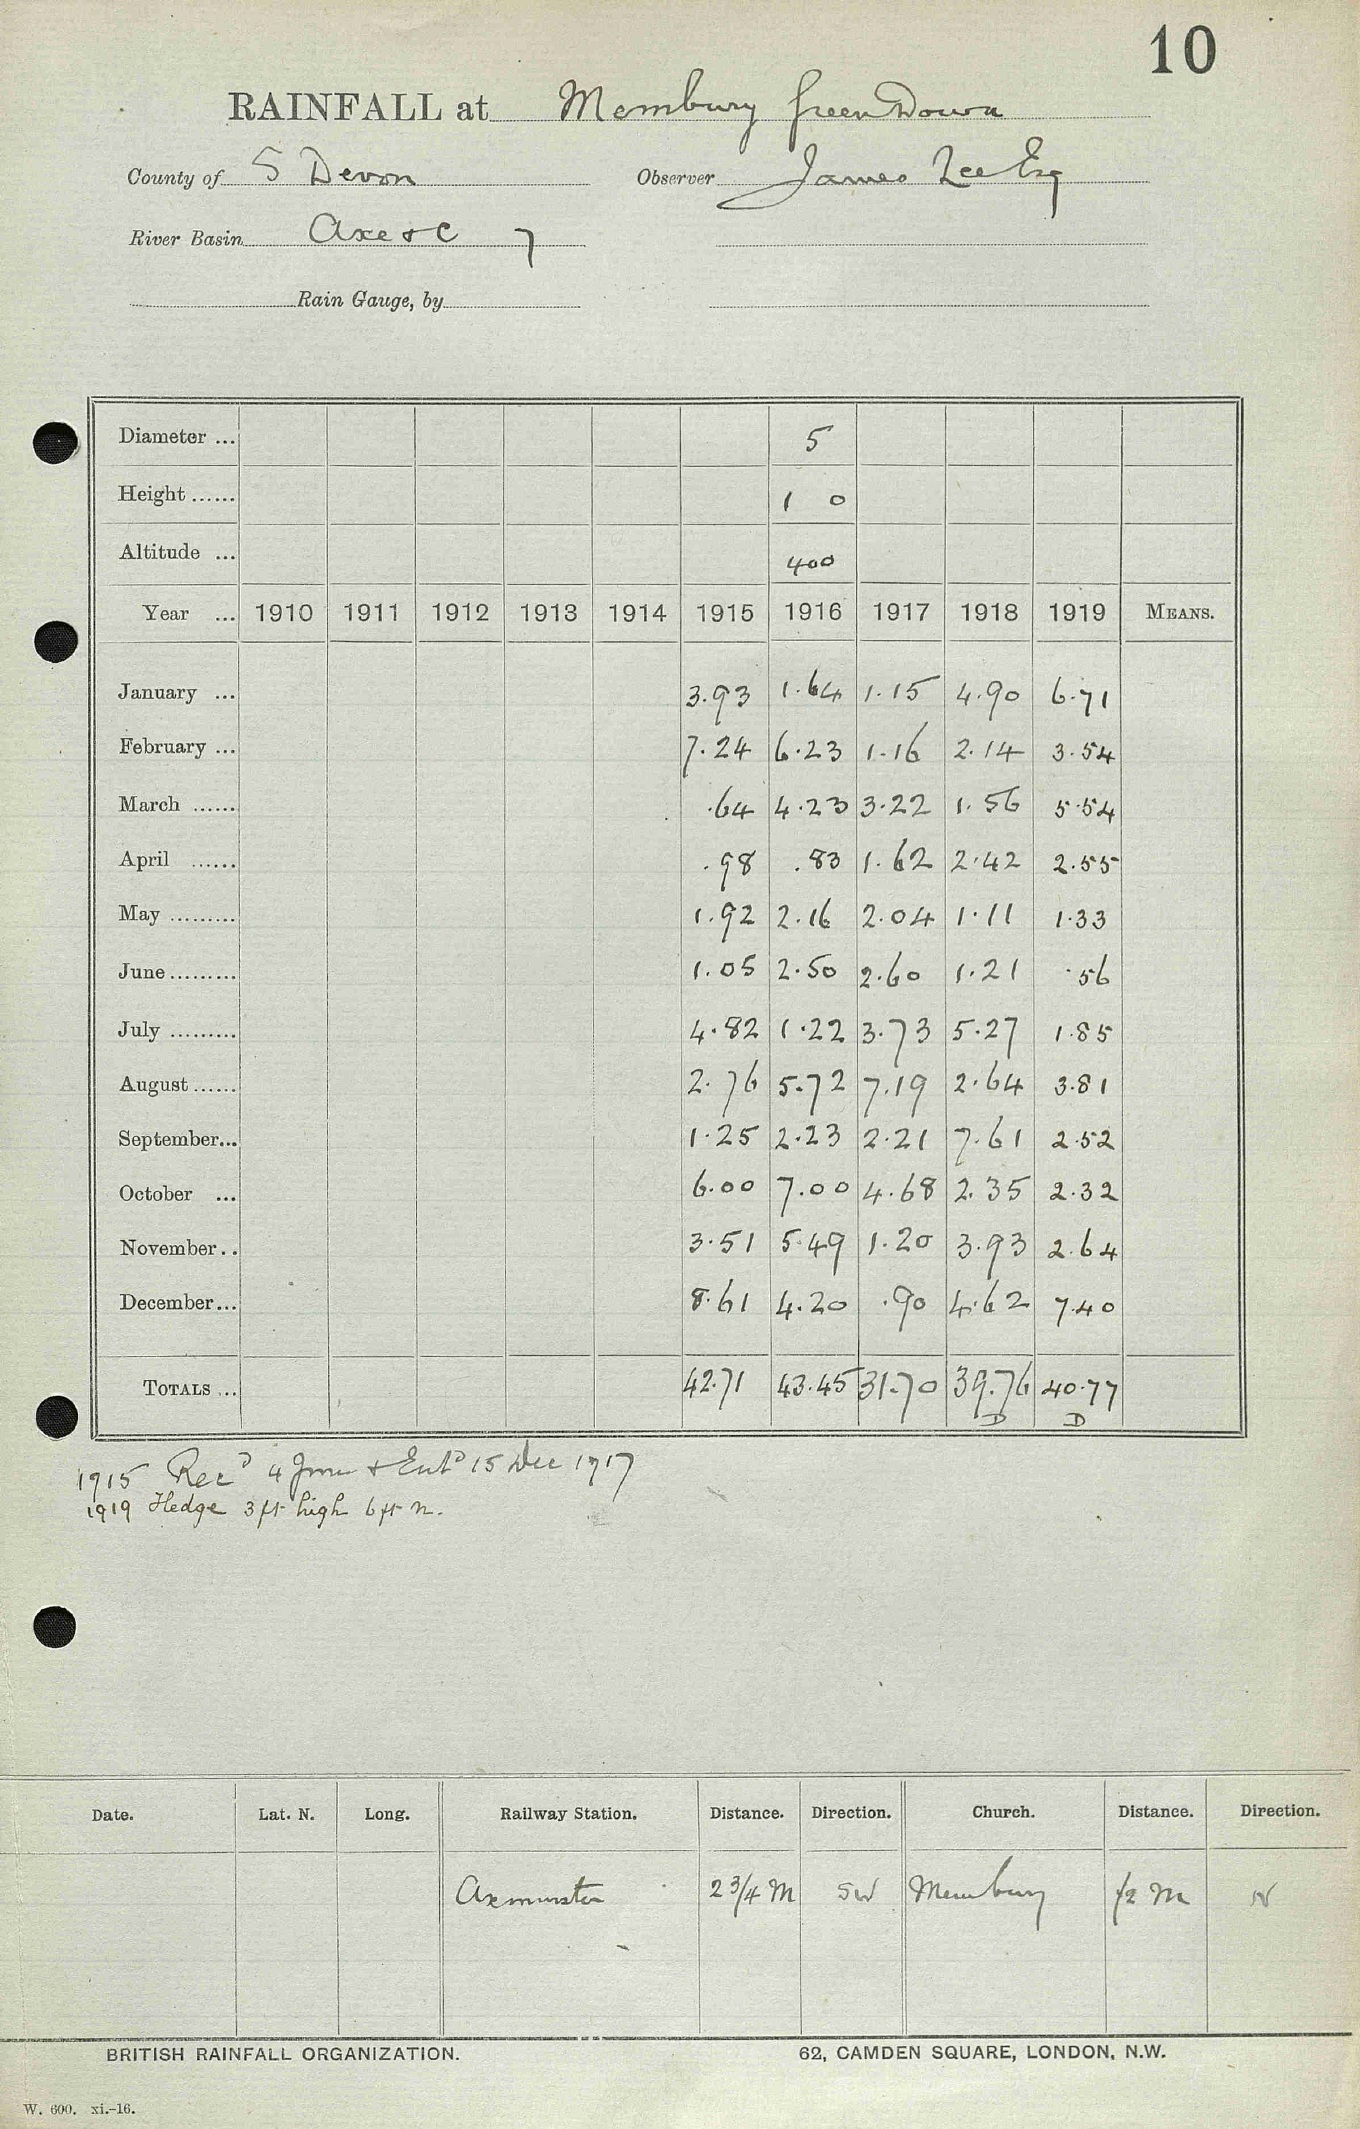 10
RAINFALL at Membury Green Down
County of S Devon Observer James Lee Esq
River Basin Axe & C 7
Rain Gauge, by
Diameter ... 5
Height ...... 1 0
Altitude ... 400
Year ... 1910 1911 1912 1913 1914 1915 1916 1917 1918 1919 MEANS.
January ... 3.93 1.64 1.15 4.90 6.71
February ... 7.24 6.23 1.16 2.14 3.54
March ...... .64 4.23 3.22 1.56 5.54
April ...... .98 .83 1.62 2.42 2.55
May ......... 1.92 2.16 2.04 1.11 1.33
June ......... 1.05 2.50 2.60 1.21 .56
July ......... 4.82 1.22 3.73 5.27 1.85
August ...... 2.76 5.72 7.19 2.64 3.81
September... 1.25 2.23 2.21 7.61 2.52
October ... 6.00 7.00 4.68 2.35 2.32
November .. 3.51 5.49 1.20 3.93 2.64
December... 8.61 4.20 .90 4.62 7.40
TOTALS ... 42.71 43.45 31.70 39.76 40.77
D D
1915 Recd 4 & Entd 15 Dec 1917
1919 Hedge 3 ft high 6 ft n.
Date. Lat. N. Long. Railway Station. Distance. Direction. Church. Distance. Direction.
Axminster 2 3/4 M SW Membury 1/2 M N
BRITISH RAINFALL ORGANIZATION. 62, CAMDEN SQUARE, LONDON, N.W.
W. 600. xi.-16.